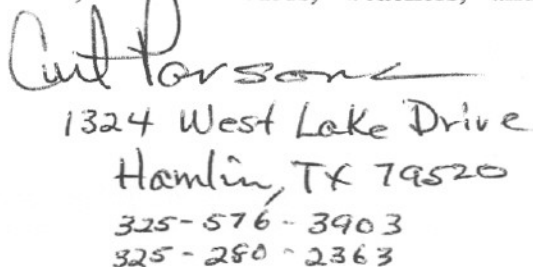 Curt Parsons
1324 West Lake Drive
Hamlin, TX 79520
325-576-3903
325-280-2363